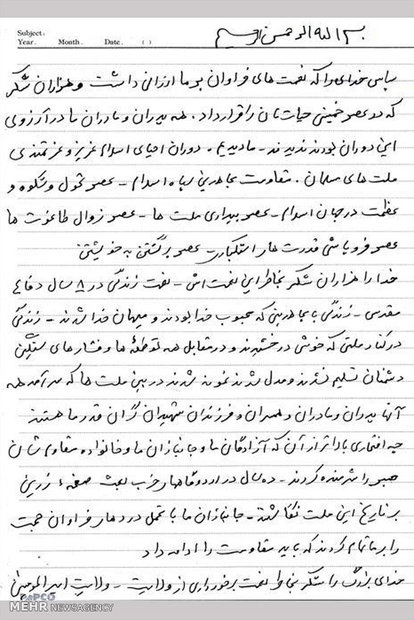 Subject:
Year. Month. Day. ( )
بسم الله الرحمن الرحیم
سپاس خدای را که نعمت های فراوان بر ما ارزانی داشت و هزاران شکر
که در عصر خمینی حیاتمان را قرار داد. همه پدران و مادران ما در آرزوی
این دوران بودند ندیدند - ما دیدیم. دوران احیای اسلام عزیز و عزتمندی
ملت های مسلمان. مقاومت مجاهدین سپاه اسلام - عصر تحول و شکوه و
عظمت در جهان اسلام - عصر بیداری ملت ها - عصر زوال طاغوت ها
عصر فروپاشی قدرت های استکبار - عصر برگشتن به خویشتن
خدا را هزاران شکر بخاطر این نعمت اش - نعمت زندگی در ۸ سال دفاع
مقدس - زندگی با مجاهدینی که محبوب خدا بودند و میهمان خدا شدند - زندگی
در کنار ملتی که خوش درخشیدند و در مقابل همه توطئه ها و فشارهای سنگین
دشمنان تسلیم نشدند و مدل شدند نمونه شدند در بین ملت ها که سرآمد همه
آنها پدران و مادران و همسران و فرزندان شهیدان گران قدر ما هستند
چه افتخاری بالاتر از آن که آزادگان ما و جانبازان ما و خانواده مقاوم شان
صبر را شرمنده کردند - ده سال در اردوگاههای حزب بعث صفحه زرین
بر تاریخ این ملت نگاشتند - جانبازان ما با تحمل دردهای فراوان حجت
را بر ما تمام کردند که باید مقاومت را ادامه داد
خدای بزرگ را شکر بخاطر نعمت برخورداری از ولایت - ولایت امیرالمومنین
MEHR NEWSAGENCY